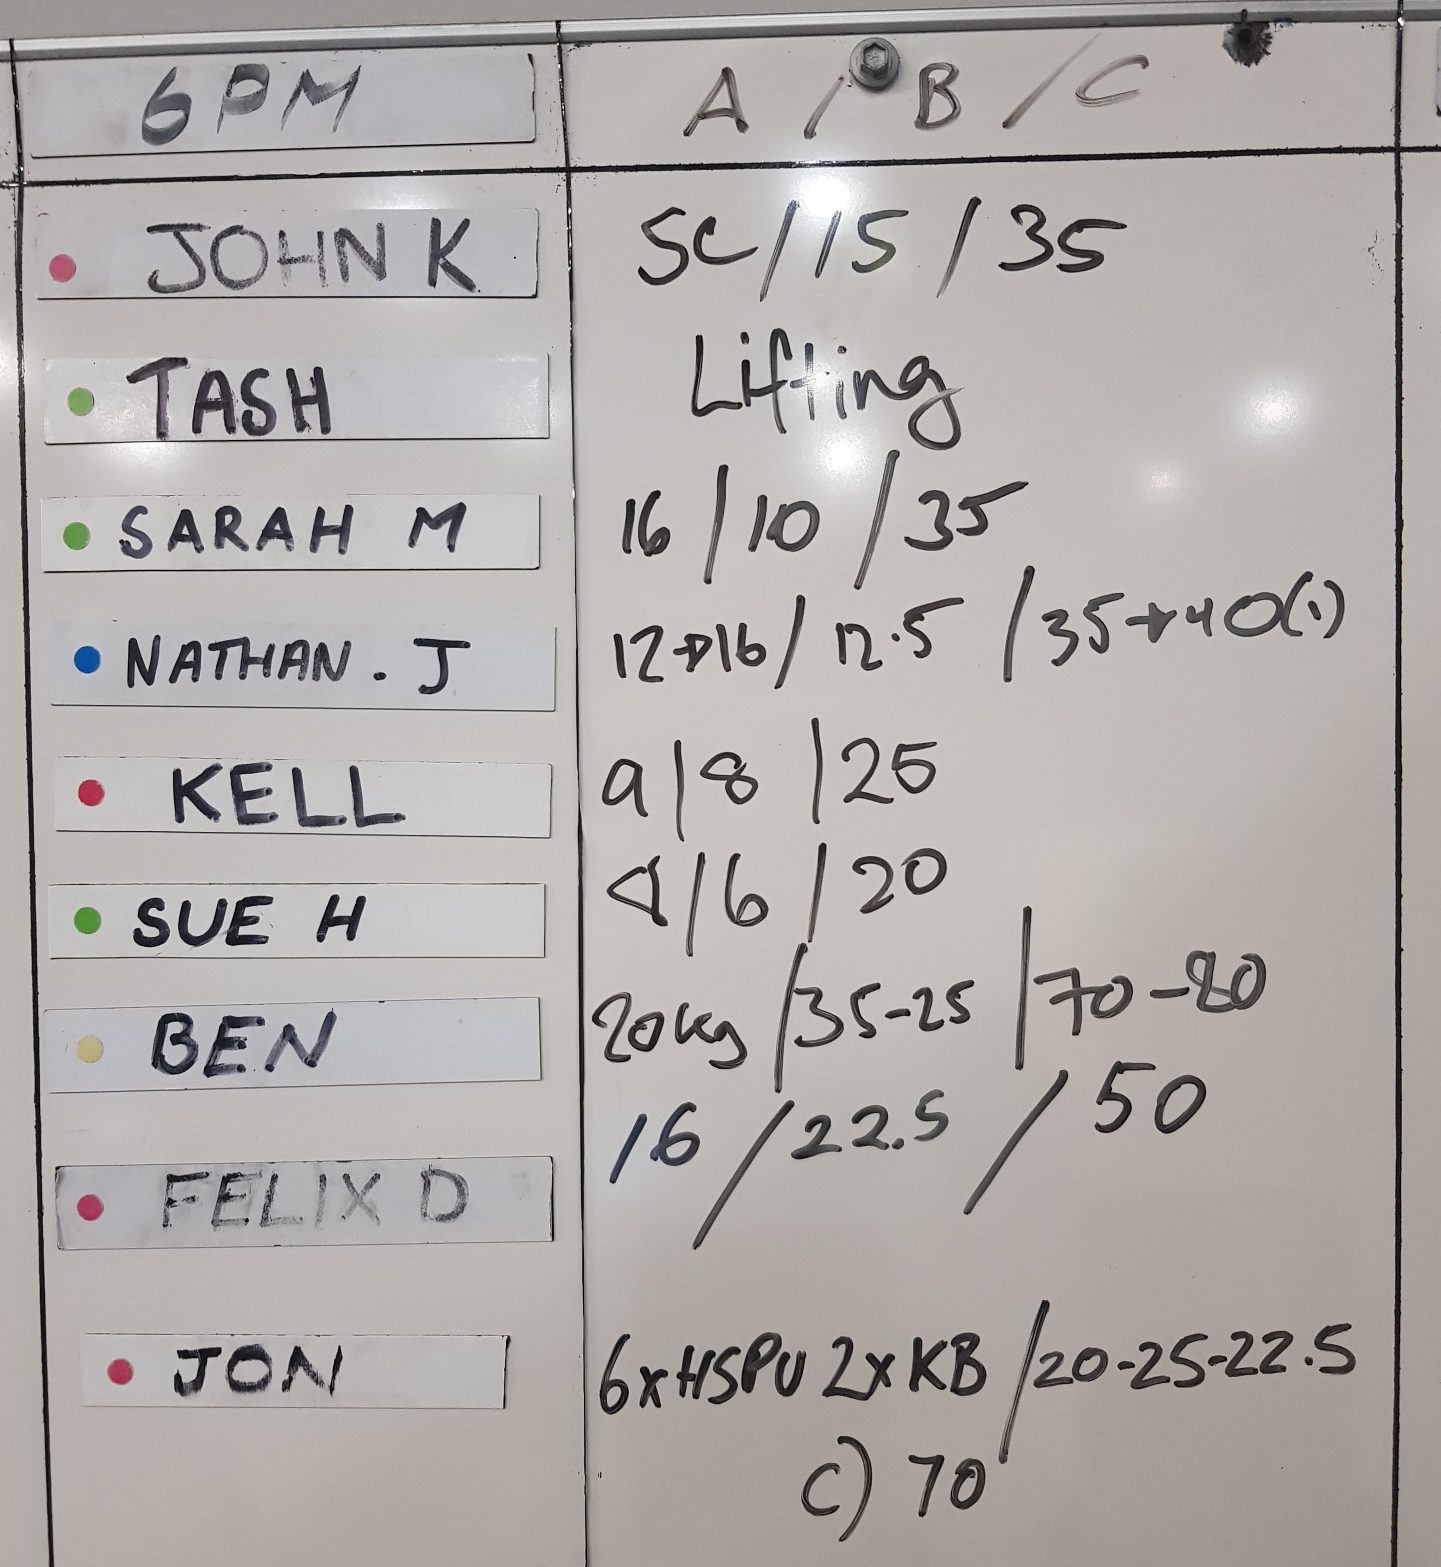 6PM A / B / C
JOHN K SC / 15 / 35
TASH Lifting
SARAH M 16 / 10 / 35
NATHAN. J 12→16 / 12.5 / 35→40(1)
KELL 9 / 8 / 25
SUE H 4 / 6 / 20
BEN 20kg / 35-25 / 70-80
FELIX D 16 / 22.5 / 50
JON 6xHSPU 2xKB / 20-25-22.5
C) 70